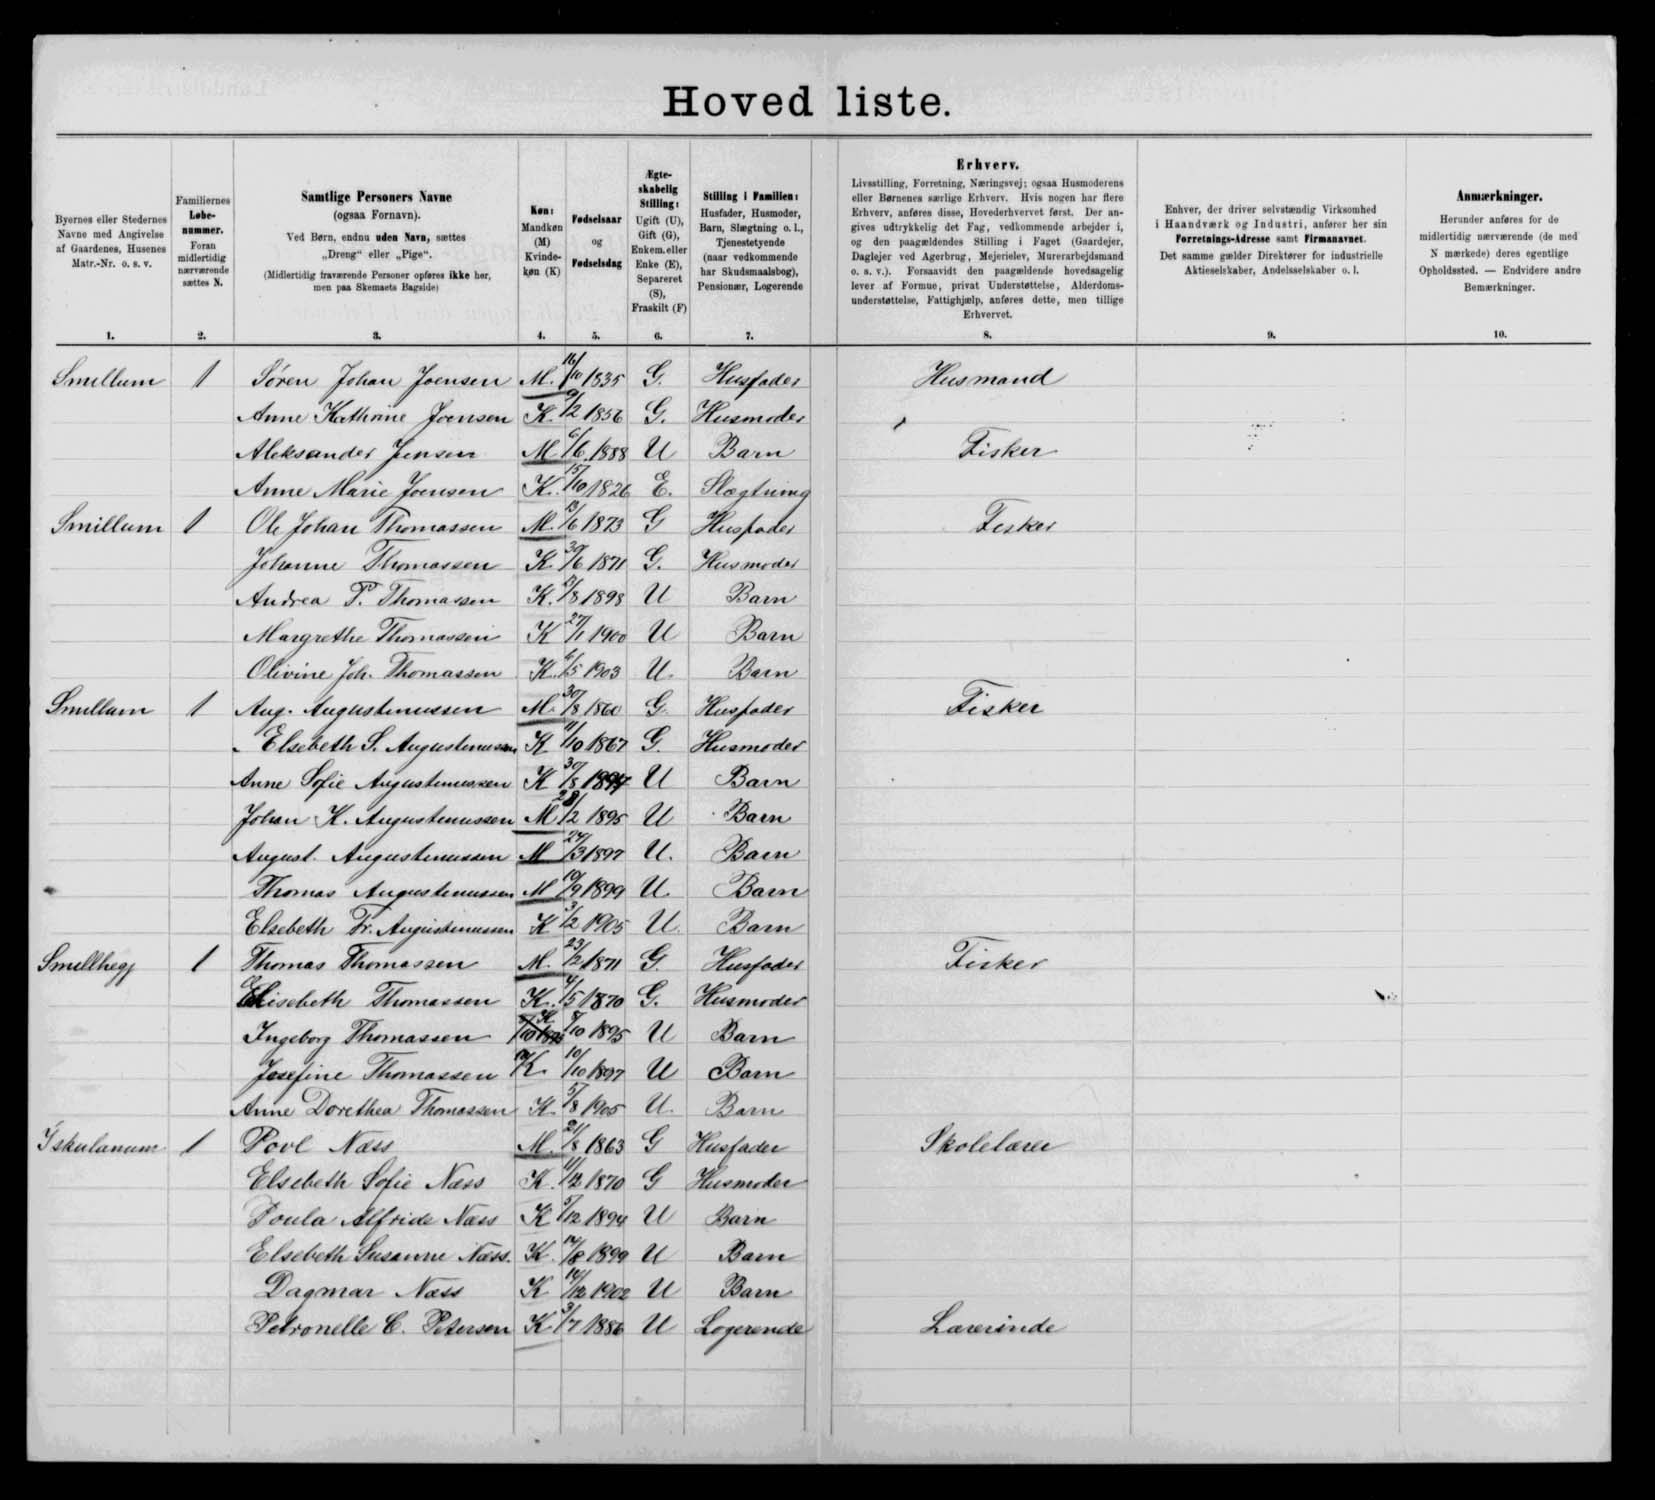 Hoved liste.
Byernes eller Stedernes Navne med Angivelse af Gaardenes, Husenes Matr.-Nr. o. s. v.
Familiernes Løbenummer. Foran midlertidig nærværende sættes N.
Samtlige Personers Navne
(ogsaa Fornavn).
Ved Børn, endnu uden Navn, sættes
„Dreng“ eller „Pige“.
(Midlertidig fraværende Personer opføres ikke her,
men paa Skemaets Bagside)
Køn: Mandkøn (M) Kvindekøn (K)
Fødselsaar og Fødselsdag
Ægteskabelig Stilling: Ugift (U), Gift (G), Enkem. eller Enke (E), Separeret (S), Fraskilt (F)
Stilling i Familien:
Husfader, Husmoder,
Barn, Slægtning o. l.,
Tjenestetyende
(naar vedkommende
har Skudsmaalsbog),
Pensionær, Logerende
Erhverv.
Livsstilling, Forretning, Næringsvej; ogsaa Husmoderens
eller Børnenes særlige Erhverv. Hvis nogen har flere
Erhverv, anføres disse, Hovederhvervet først. Der an-
gives udtrykkelig det Fag, vedkommende arbejder i,
og den paagældendes Stilling i Faget (Gaardejer,
Daglejer ved Agerbrug, Mejerielev, Murerarbejdsmand
o. s. v.). Forsaavidt den paagældende hovedsagelig
lever af Formue, privat Understøttelse, Alderdoms-
understøttelse, Fattighjælp, anføres dette, men tillige
Erhvervet.
Enhver, der driver selvstændig Virksomhed
i Haandværk og Industri, anfører her sin
Forretnings-Adresse samt Firmanavnet.
Det samme gælder Direktører for industrielle
Aktieselskaber, Andelsselskaber o. l.
Anmærkninger.
Herunder anføres for de
midlertidig nærværende (de med
N mærkede) deres egentlige
Opholdssted. — Endvidere andre
Bemærkninger.
1. 2. 3. 4. 5. 6. 7. 8. 9. 10.
Smillum 1 Søren Johan Joensen M. 16/10 1835 G. Husfader Husmand
Anne Kathrine Joensen K. 9/2 1856 G. Husmoder
Aleksander Jensen M 6/6 1888 U Barn Fisker
Anne Marie Joensen K. 15/10 1826 E. Slægtning
Smillum 1 Ole Johan Thomassen M. 13/6 1873 G Husfader Fisker
Johanne Thomassen K. 30/6 1871 G. Husmoder
Andrea P. Thomassen K. 9/8 1898 U Barn
Margrethe Thomassen K 27/1 1900 U Barn
Olivine Joh. Thomassen K. 6/5 1903 U. Barn
Smillum 1 Aug. Augustinussen M. 30/8 1860 G. Husfader Fisker
Elsebeth S. Augustinussen K 11/10 1867 G. Husmoder
Anne Sofie Augustinussen K 30/8 1894 U Barn
Johan K. Augustinussen M 28/2 1895 U Barn
August. Augustinussen M 24/3 1897 U. Barn
Thomas Augustinussen M 19/9 1899 U. Barn
Elsebeth Fr. Augustinussen K 3/2 1905 U. Barn
Smillhegj 1 Thomas Thomassen M. 23/2 1871 G. Husfader Fisker
Elisebeth Thomassen K. 4/5 1870 G. Husmoder
Ingeborg Thomassen K 8/10 1895 U Barn
Josefine Thomassen K. 10/10 1897 U Barn
Anne Dorethea Thomassen K. 5/8 1905 U. Barn
Iskulanum 1 Povl Næss M. 21/8 1863 G Husfader Skolelærer
Elsebeth Sofie Næss K. 11/12 1870 G Husmoder
Poula Alfride Næss K 5/12 1894 U Barn
Elsebeth Susanne Næss. K. 14/8 1899 U Barn
Dagmar Næss K 14/12 1902 U Barn
Petronelle C. Petersen K 3/7 1886 U Logerende Lærerinde